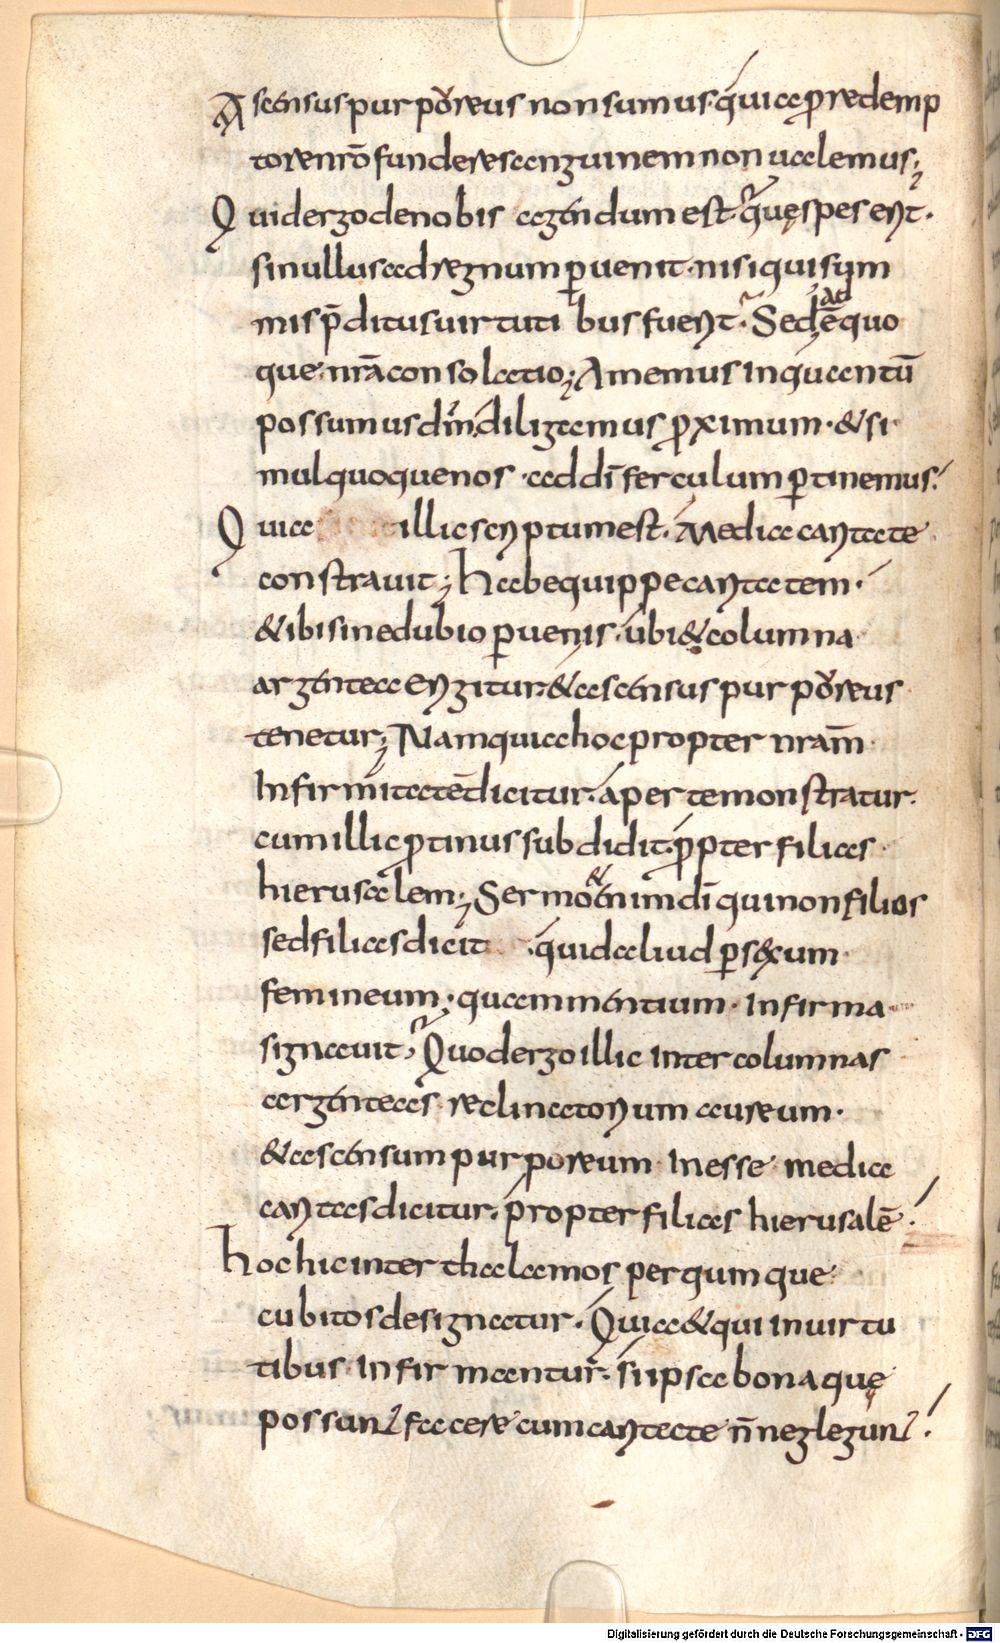 Ascensus purporeus non sumus. quia p redemp
tore nrō fundere sanguinem non ualemus;
Quid ergo de nobis agendum est. quę spes erit.
si nullus ad regnum peruenit. nisi qui sum
mis pditus uirtutibus fuerit. Sed ad ē quo
que nrā consolatio; Amemus inquantū
possumus dm̄. diligamus proximum. & si
mul quoque nos. ad dī ferculum ptinemus.
Quia illic scriptum est. Media caritate
constrauit; Habe quippe caritatem.
& ibi sine dubio peruenis. ubi & columna
argentea erigitur. & ascensus purporeus
tenetur; Nam quia hoc propter nrām
Infirmitatē dicitur. aperte monstratur.
cum illic protinus subdidit. ppter filias
hierusalem; Sermo & enim dī qui non filios
sed filias dicit quid aliud p sexum
femineum. quam mentium. Infirma
signauit, Quod ergo illic Inter columnas
argenteas reclinatorium aureum.
& ascensum purporeum Inesse media
caritas dicitur. propter filias hierusalē.
hoc hic inter thalamos per quinque
cubitos designatur. Quia & qui in uirtu
tibus Infirmantur. si ipsa bona quę
possunt facere cum caritate n̄ neglegunt.
Digitalisierung gefördert durch die Deutsche Forschungsgemeinschaft - DFG